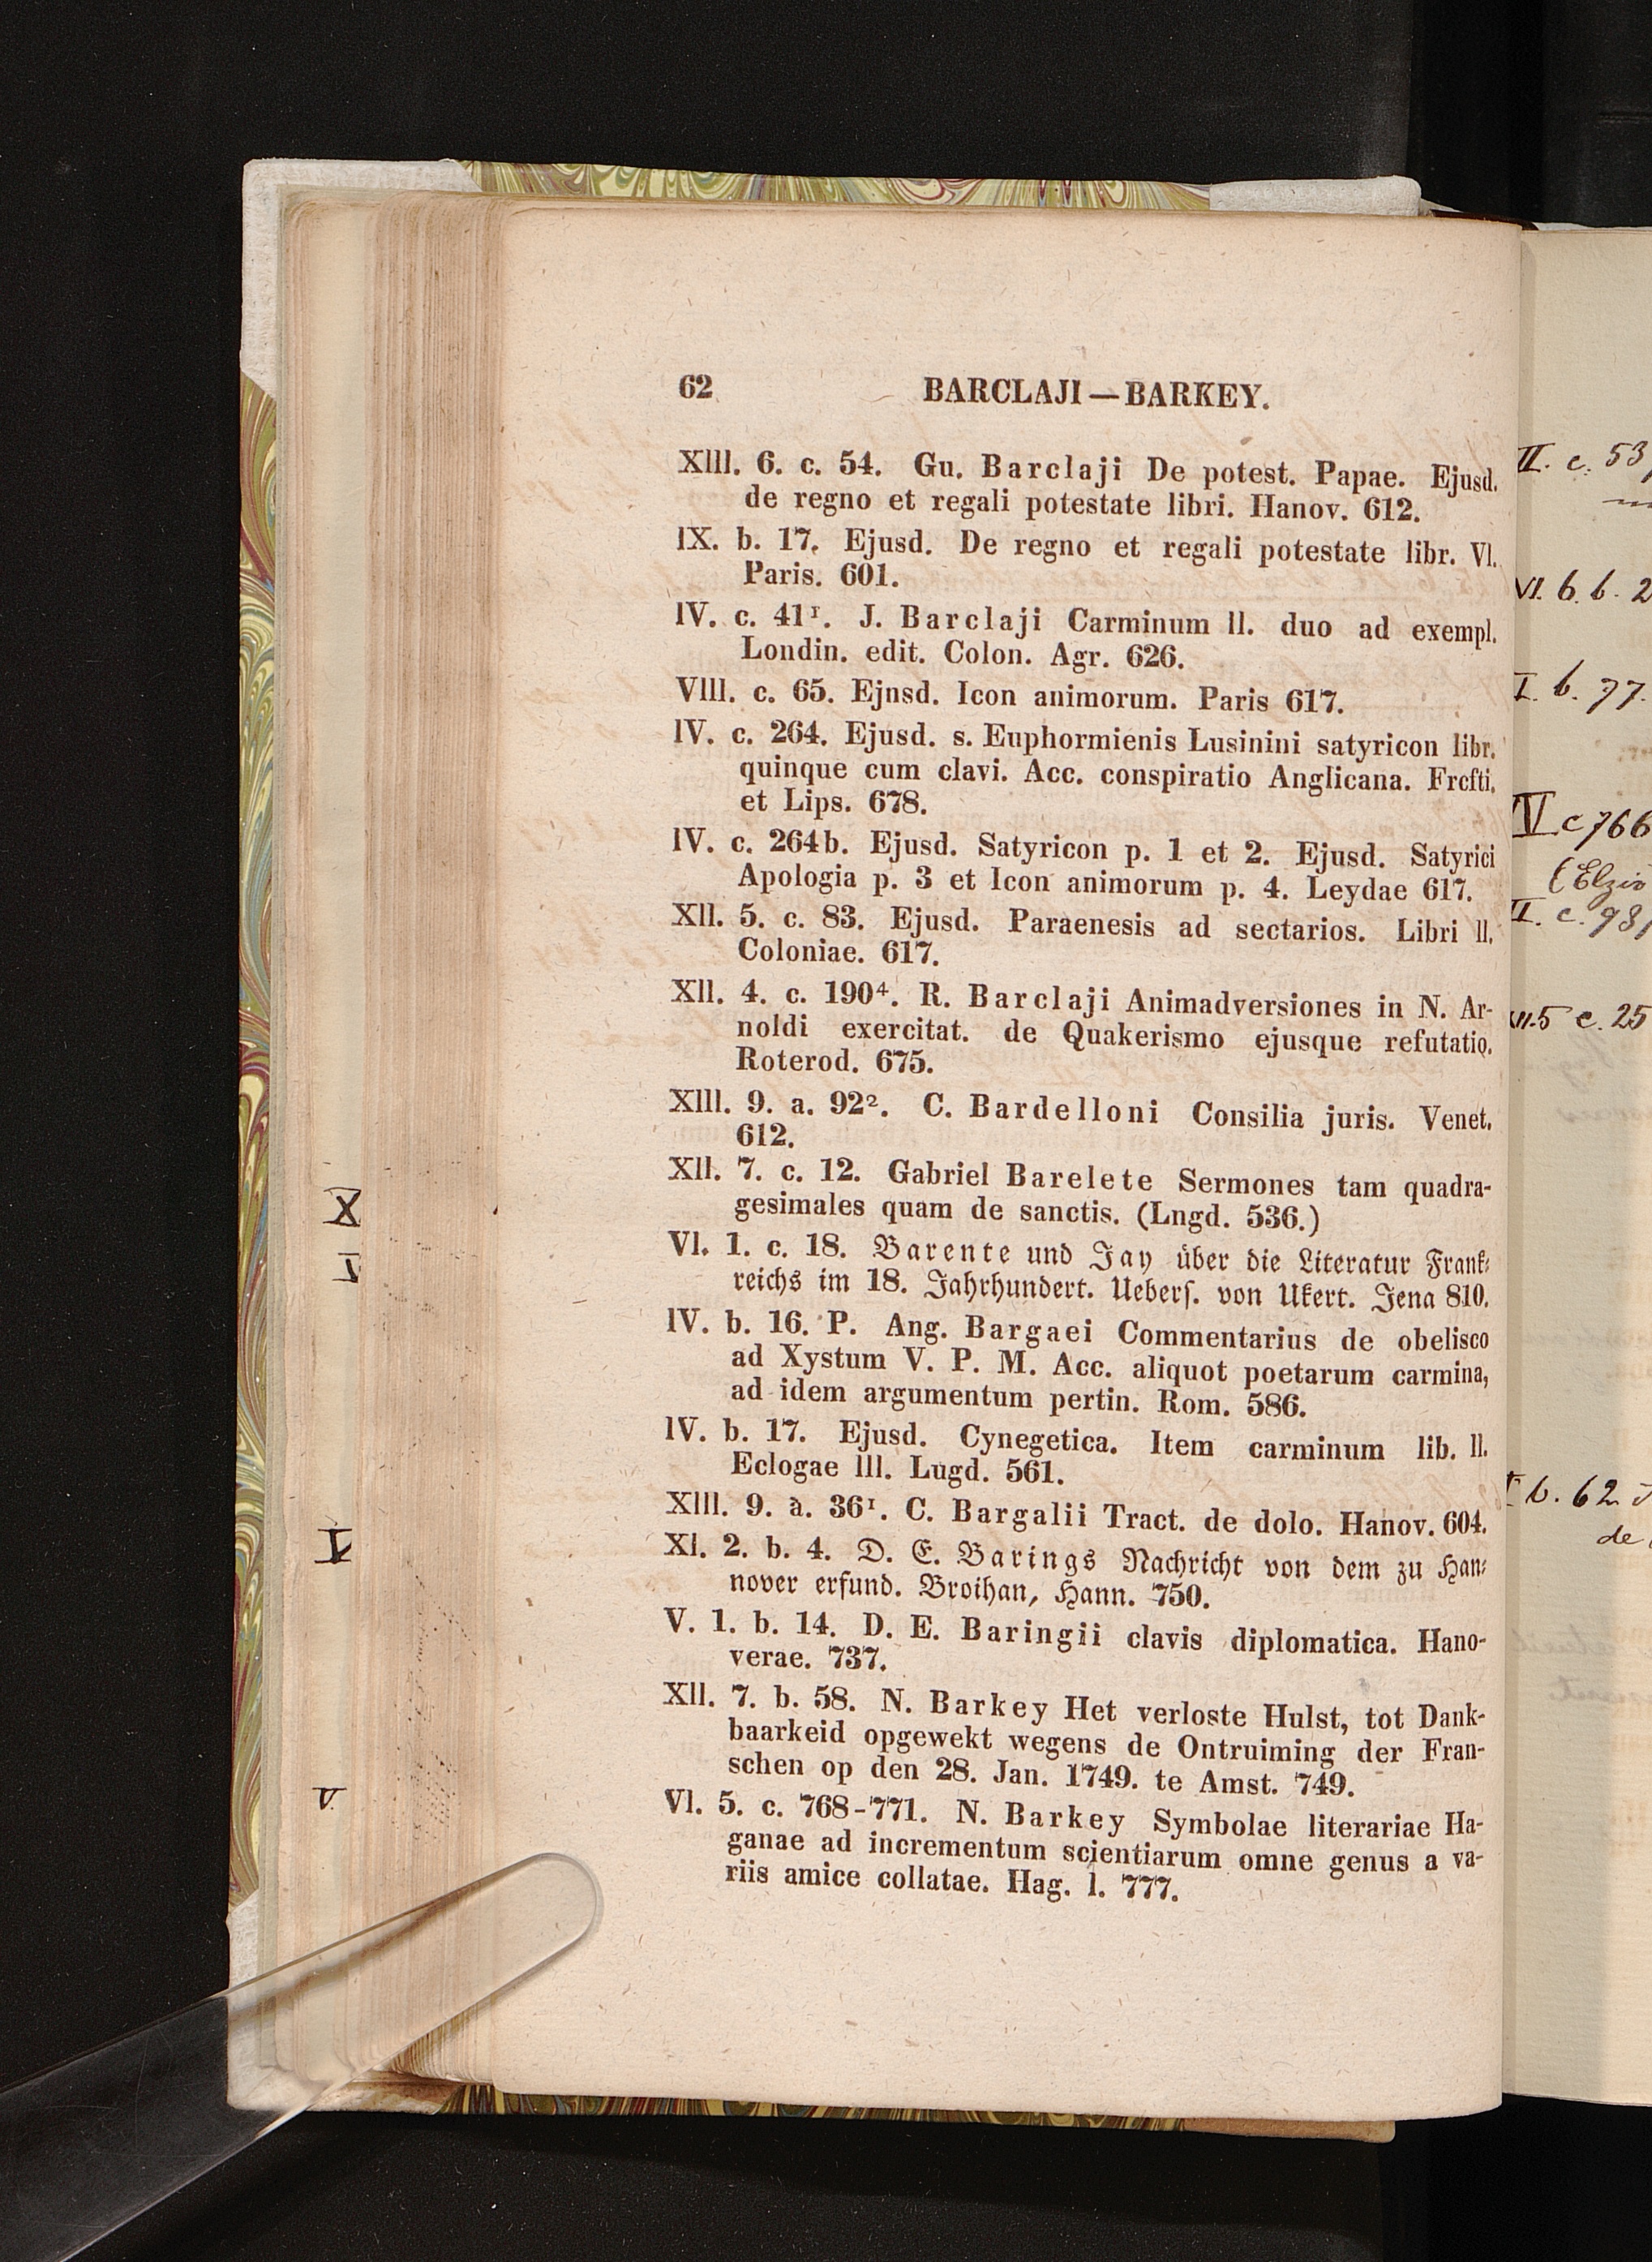 62 BARCLAJI—BARKEY.
XIII. 6. c. 54. Gu. Barclaji De potest. Papae. Ejusd.
de regno et regali potestate libri. Hanov. 612.
IX. b. 17. Ejusd. De regno et regali potestate libr. VI.
Paris. 601.
IV. c. 41¹. J. Barclaji Carminum ll. duo ad exempl.
Londin. edit. Colon. Agr. 626.
VIII. c. 65. Ejnsd. Icon animorum. Paris 617.
IV. c. 264. Ejusd. s. Euphormienis Lusinini satyricon libr.
quinque cum clavi. Acc. conspiratio Anglicana. Frcfti.
et Lips. 678.
IV. c. 264b. Ejusd. Satyricon p. 1 et 2. Ejusd. Satyrici
Apologia p. 3 et Icon animorum p. 4. Leydae 617.
XII. 5. c. 83. Ejusd. Paraenesis ad sectarios. Libri II.
Coloniae. 617.
XII. 4. c. 190⁴. R. Barclaji Animadversiones in N. Ar-
noldi exercitat. de Quakerismo ejusque refutatio.
Roterod. 675.
XIII. 9. a. 92². C. Bardelloni Consilia juris. Venet.
612.
XII. 7. c. 12. Gabriel Barelete Sermones tam quadra-
gesimales quam de sanctis. (Lngd. 536.)
VI. 1. c. 18. Barente und Jay über die Literatur Frank-
reichs im 18. Jahrhundert. Uebers. von Ukert. Jena 810.
IV. b. 16. P. Ang. Bargaei Commentarius de obelisco
ad Xystum V. P. M. Acc. aliquot poetarum carmina,
ad idem argumentum pertin. Rom. 586.
IV. b. 17. Ejusd. Cynegetica. Item carminum lib. II.
Eclogae III. Lugd. 561.
XIII. 9. a. 36¹. C. Bargalii Tract. de dolo. Hanov. 604.
XI. 2. b. 4. D. E. Barings Nachricht von dem zu Han-
nover erfund. Broihan, Hann. 750.
V. 1. b. 14. D. E. Baringii clavis diplomatica. Hano-
verae. 737.
XII. 7. b. 58. N. Barkey Het verloste Hulst, tot Dank-
baarkeid opgewekt wegens de Ontruiming der Fran-
schen op den 28. Jan. 1749. te Amst. 749.
VI. 5. c. 768-771. N. Barkey Symbolae literariae Ha-
ganae ad incrementum scientiarum omne genus a va-
riis amice collatae. Hag. l. 777.
II. c. 53
VI. 6. b. 2
I. b. 77.
IV c 766
(Elzi
II. c. 98
XII.5 c. 25
b. 62
de
X
V